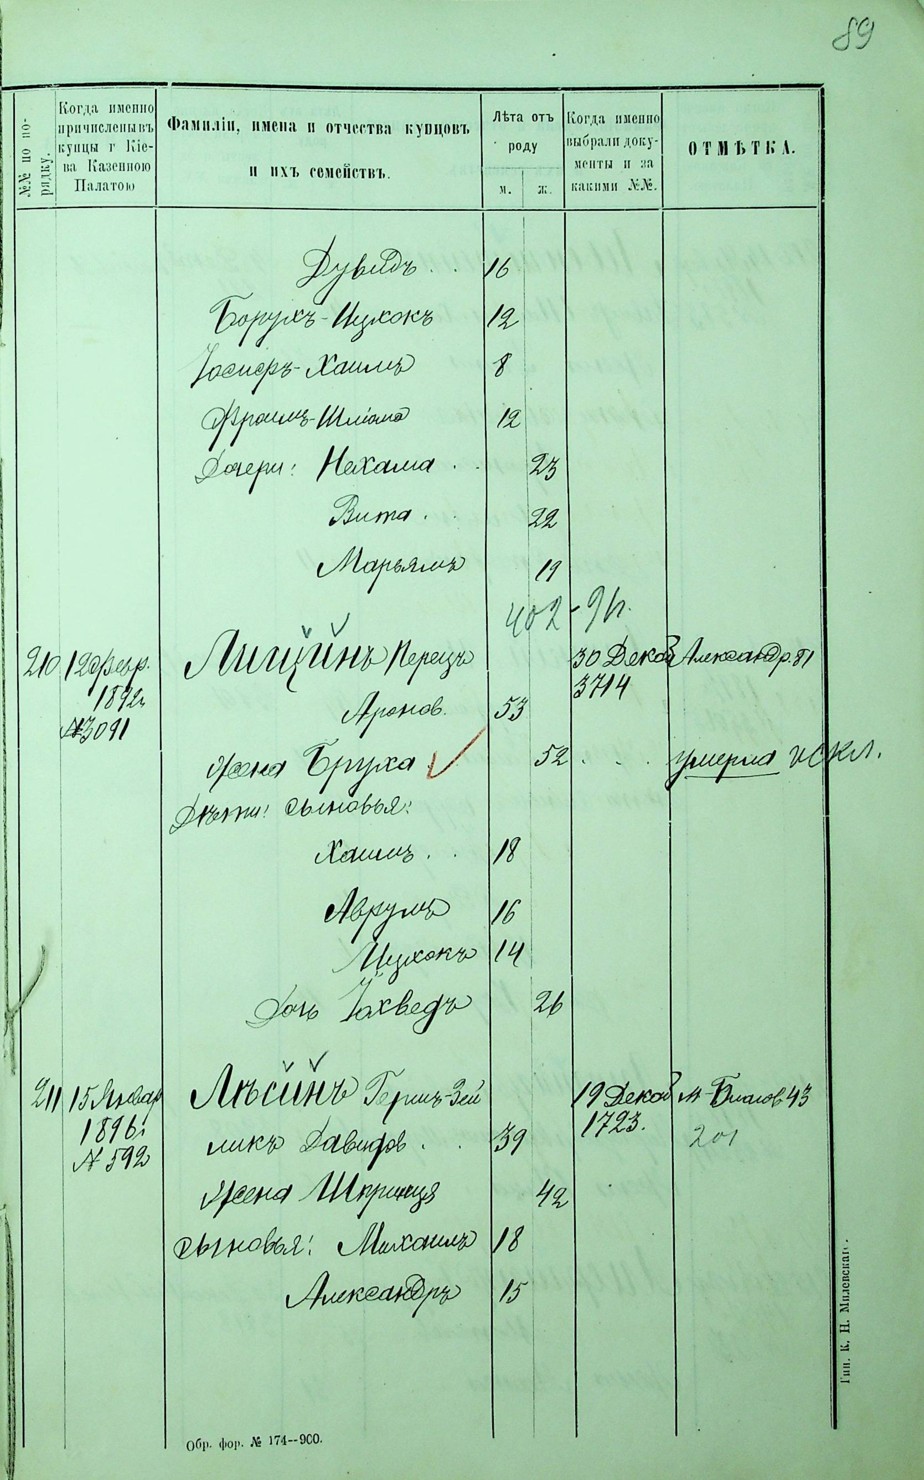 89
№№ по по-
рядку.
Когда именно
причислены въ
купцы г Кіе-
ва Казенною
Палатою
Фамиліи, имена и отчества купцовъ
и ихъ семействъ.
Лѣта отъ
роду
м. ж.
Когда именно
выбрали доку-
менты и за
какими №№.
ОТМѢТКА.
Дувидъ . . 16
Борухъ-Ицхокъ 12
Іосифъ-Хаимъ 8
Фроимъ-Шліома 12
Дочери: Нехама . . 23
Вита . 22
Марьямъ 19
402 - 96.
210 12 февр. Лищинъ Перецъ 30 Декаб Александр. 81
1892 Аронов. 53 3714
№ 3091
Жена Бруха . 52 . . . умерла искл.
Дѣти: сыновья:
Хаимъ . . 18
Аврумъ 16
Ицхокъ 14
Дочь Іохведъ 26
211 15 Январ Лѣсинъ Гершъ-Зей 19 Декаб м-Благов 43
1896 ликъ Давидов . . 39 1723. 201
№ 592
Жена Шкринця 42
сыновья: Михаилъ 18
Александръ 15
Обр. фор. № 174--900.
Тип. К. Н. Милевскаго.